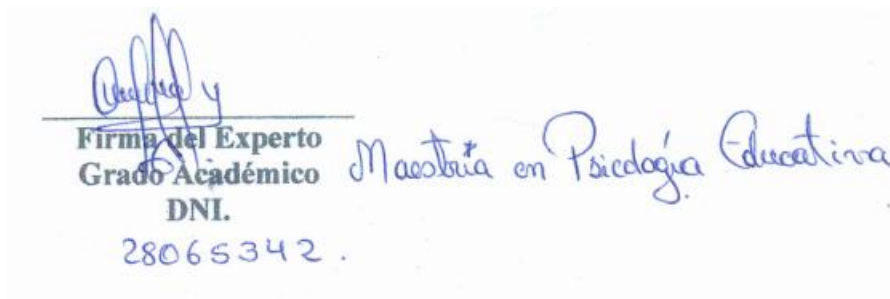 Firma del Experto
Grado Académico Maestría en Psicología Educativa
DNI.
28065342.